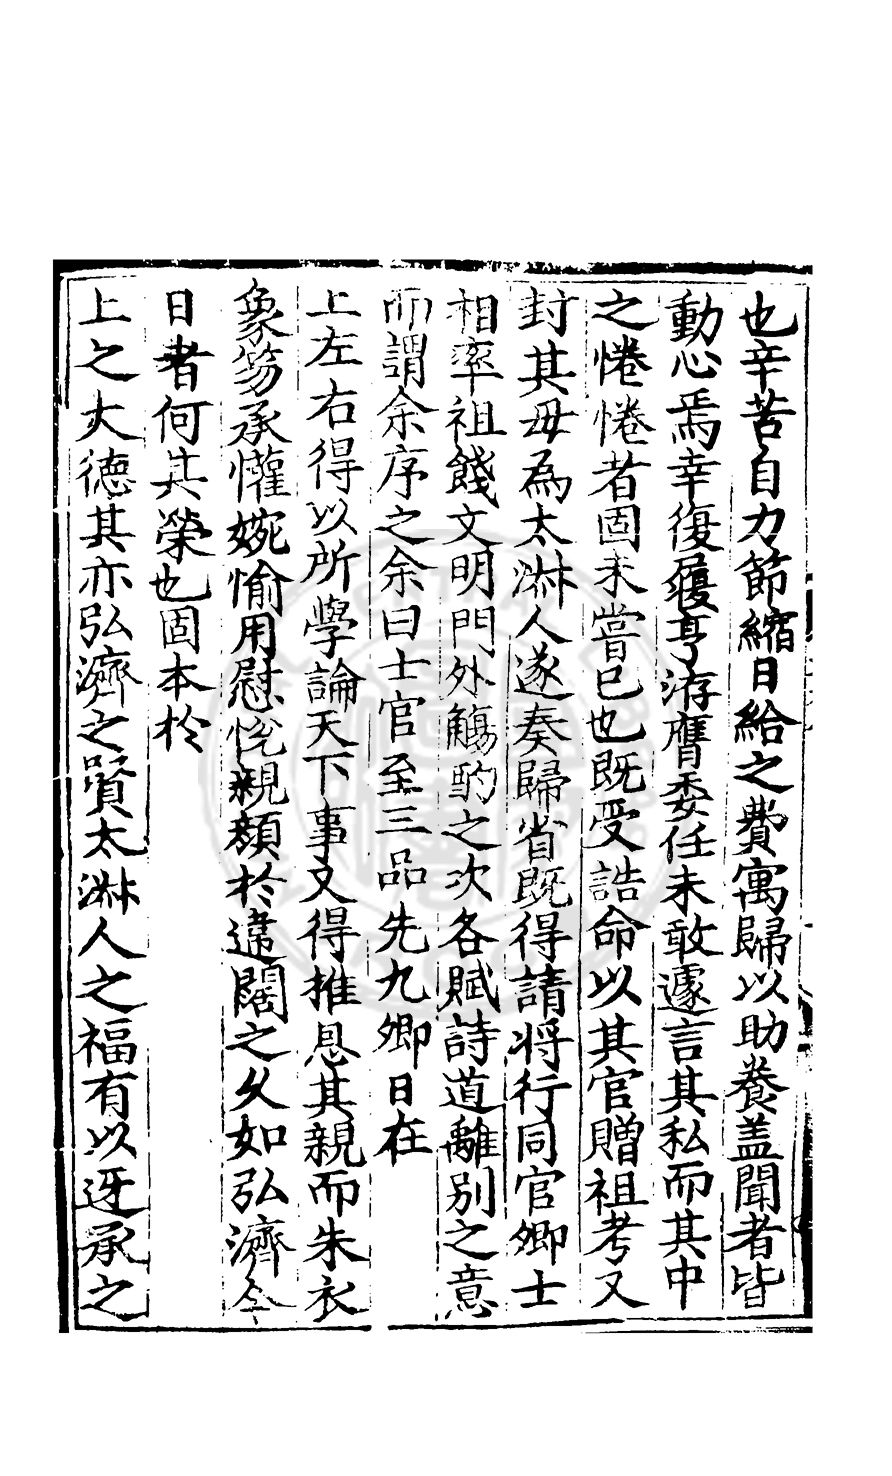 也辛苦自力節縮日給之費寓歸以助養盖聞者皆
動心焉幸復屨亨洊膺委任未敢遽言其私而其中
之惓惓者固未嘗已也既受誥命以其官贈祖考又
封其母為太淋人遂奏歸省既得請将行同官卿士
相率祖餞文明門外觴酌之次各賦詩道離别之意
而謂余序之余曰士官至三品先九卿日在
上左右得以所學論天下事又得推恩其親而朱衣
象笏承懽婉愉用慰恱親顔於違闊之久如弘濟今
日者何其榮也固本於
上之大德其亦弘濟之賢太淋人之福有以迓承之